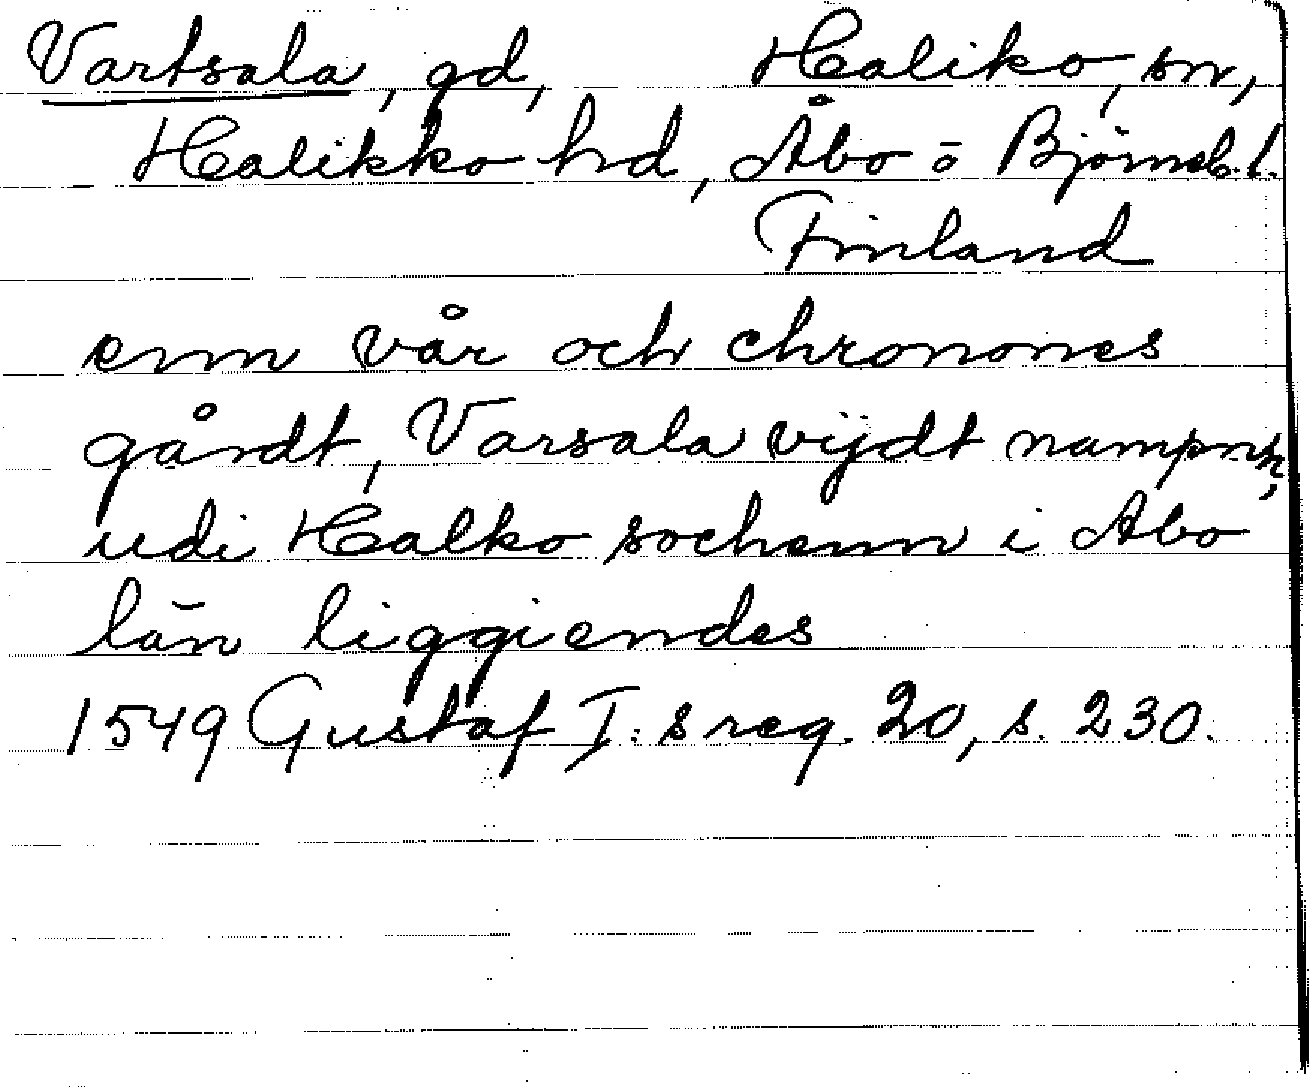 Vartsala, gd, Haliko, sn,
Halikko hd, Åbo o Björneb. l.
Finland
enn vår och chronones
gårdt, Varsala vijdt nampnn,
udi Halko sochenn i Abo
län liggiendes
1549 Gustaf I:s reg. 20, s. 230.